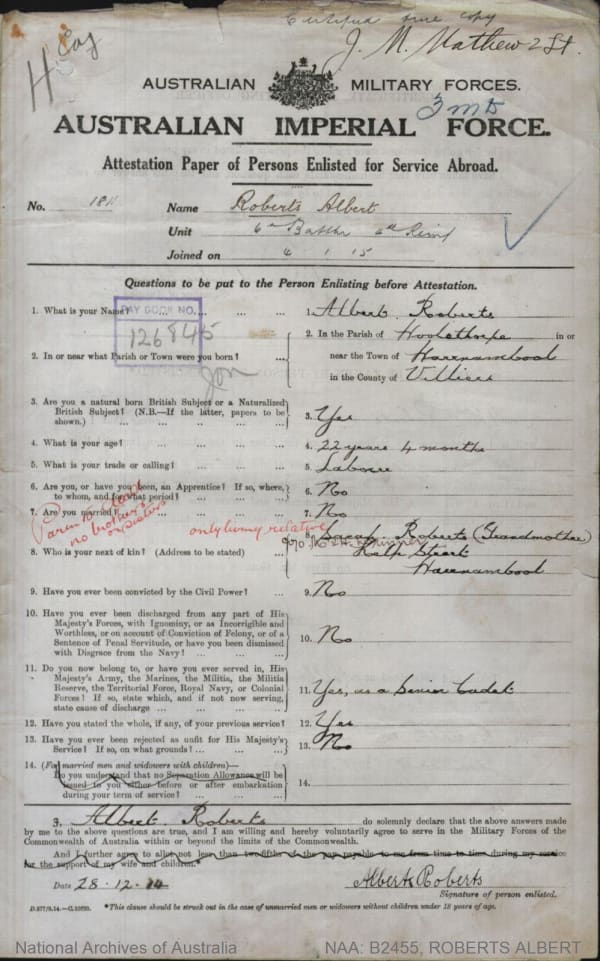 Certified true copy
J. M. Mathew 2 Lt.
AUSTRALIAN MILITARY FORCES.
3 mD
AUSTRALIAN IMPERIAL FORCE.
Attestation Paper of Persons Enlisted for Service Abroad.
No. 1811 Name Roberts Albert
Unit 6th Battln
Joined on 4 1 15
Questions to be put to the Person Enlisting before Attestation.
1. What is your Name? ... ... ... 1. Albert Roberts
PAY BOOK NO.
126845
2. In or near what Parish or Town were you born? ...
2. In the Parish of in or
near the Town of Warrnambool
in the County of Villiers
3. Are you a natural born British Subject or a Naturalized
British Subject? (N.B.—If the latter, papers to be
shown.) ... ... ... ... ...
3. Yes
4. What is your age? ... ... ... ... 4. 22 years 4 months
5. What is your trade or calling? ... ... ... 5. Labourer
6. Are you, or have you been, an Apprentice? If so, where,
to whom, and for what period? ... ... ...
6. No
7. Are you married? ... ... ... 7. No
Parents dead
no brothers
or sisters
only living relative
8. Who is your next of kin? (Address to be stated) ...
8. Sarah Roberts (Grandmother)
c/o
Street
Warrnambool
9. Have you ever been convicted by the Civil Power? ... 9. No
10. Have you ever been discharged from any part of His
Majesty's Forces, with Ignominy, or as Incorrigible and
Worthless, or on account of Conviction of Felony, or of a
Sentence of Penal Servitude, or have you been dismissed
with Disgrace from the Navy? ... ... ...
10. No
11. Do you now belong to, or have you ever served in, His
Majesty's Army, the Marines, the Militia, the Militia
Reserve, the Territorial Force, Royal Navy, or Colonial
Forces? If so, state which, and if not now serving,
state cause of discharge ... ... ... ...
11. Yes, as a Senior Cadet
12. Have you stated the whole, if any, of your previous service? 12. Yes
13. Have you ever been rejected as unfit for His Majesty's
Service? If so, on what grounds? ... ... ...
13. No
14. (For married men and widowers with children)—
Do you understand that no Separation Allowance will be
issued to you either before or after embarkation
during your term of service? ... ... ...
14.
I, Albert Roberts do solemnly declare that the above answers made
by me to the above questions are true, and I am willing and hereby voluntarily agree to serve in the Military Forces of the
Commonwealth of Australia within or beyond the limits of the Commonwealth.
And I further agree to allot not less than two-fifths of the pay payable to me from time to time during my service
for the support of my wife and children.*
Date 28.12.14 Albert Roberts
Signature of person enlisted.
D.577/9.14.—C.10829. *This clause should be struck out in the case of unmarried men or widowers without children under 18 years of age.
National Archives of Australia NAA: B2455, ROBERTS ALBERT